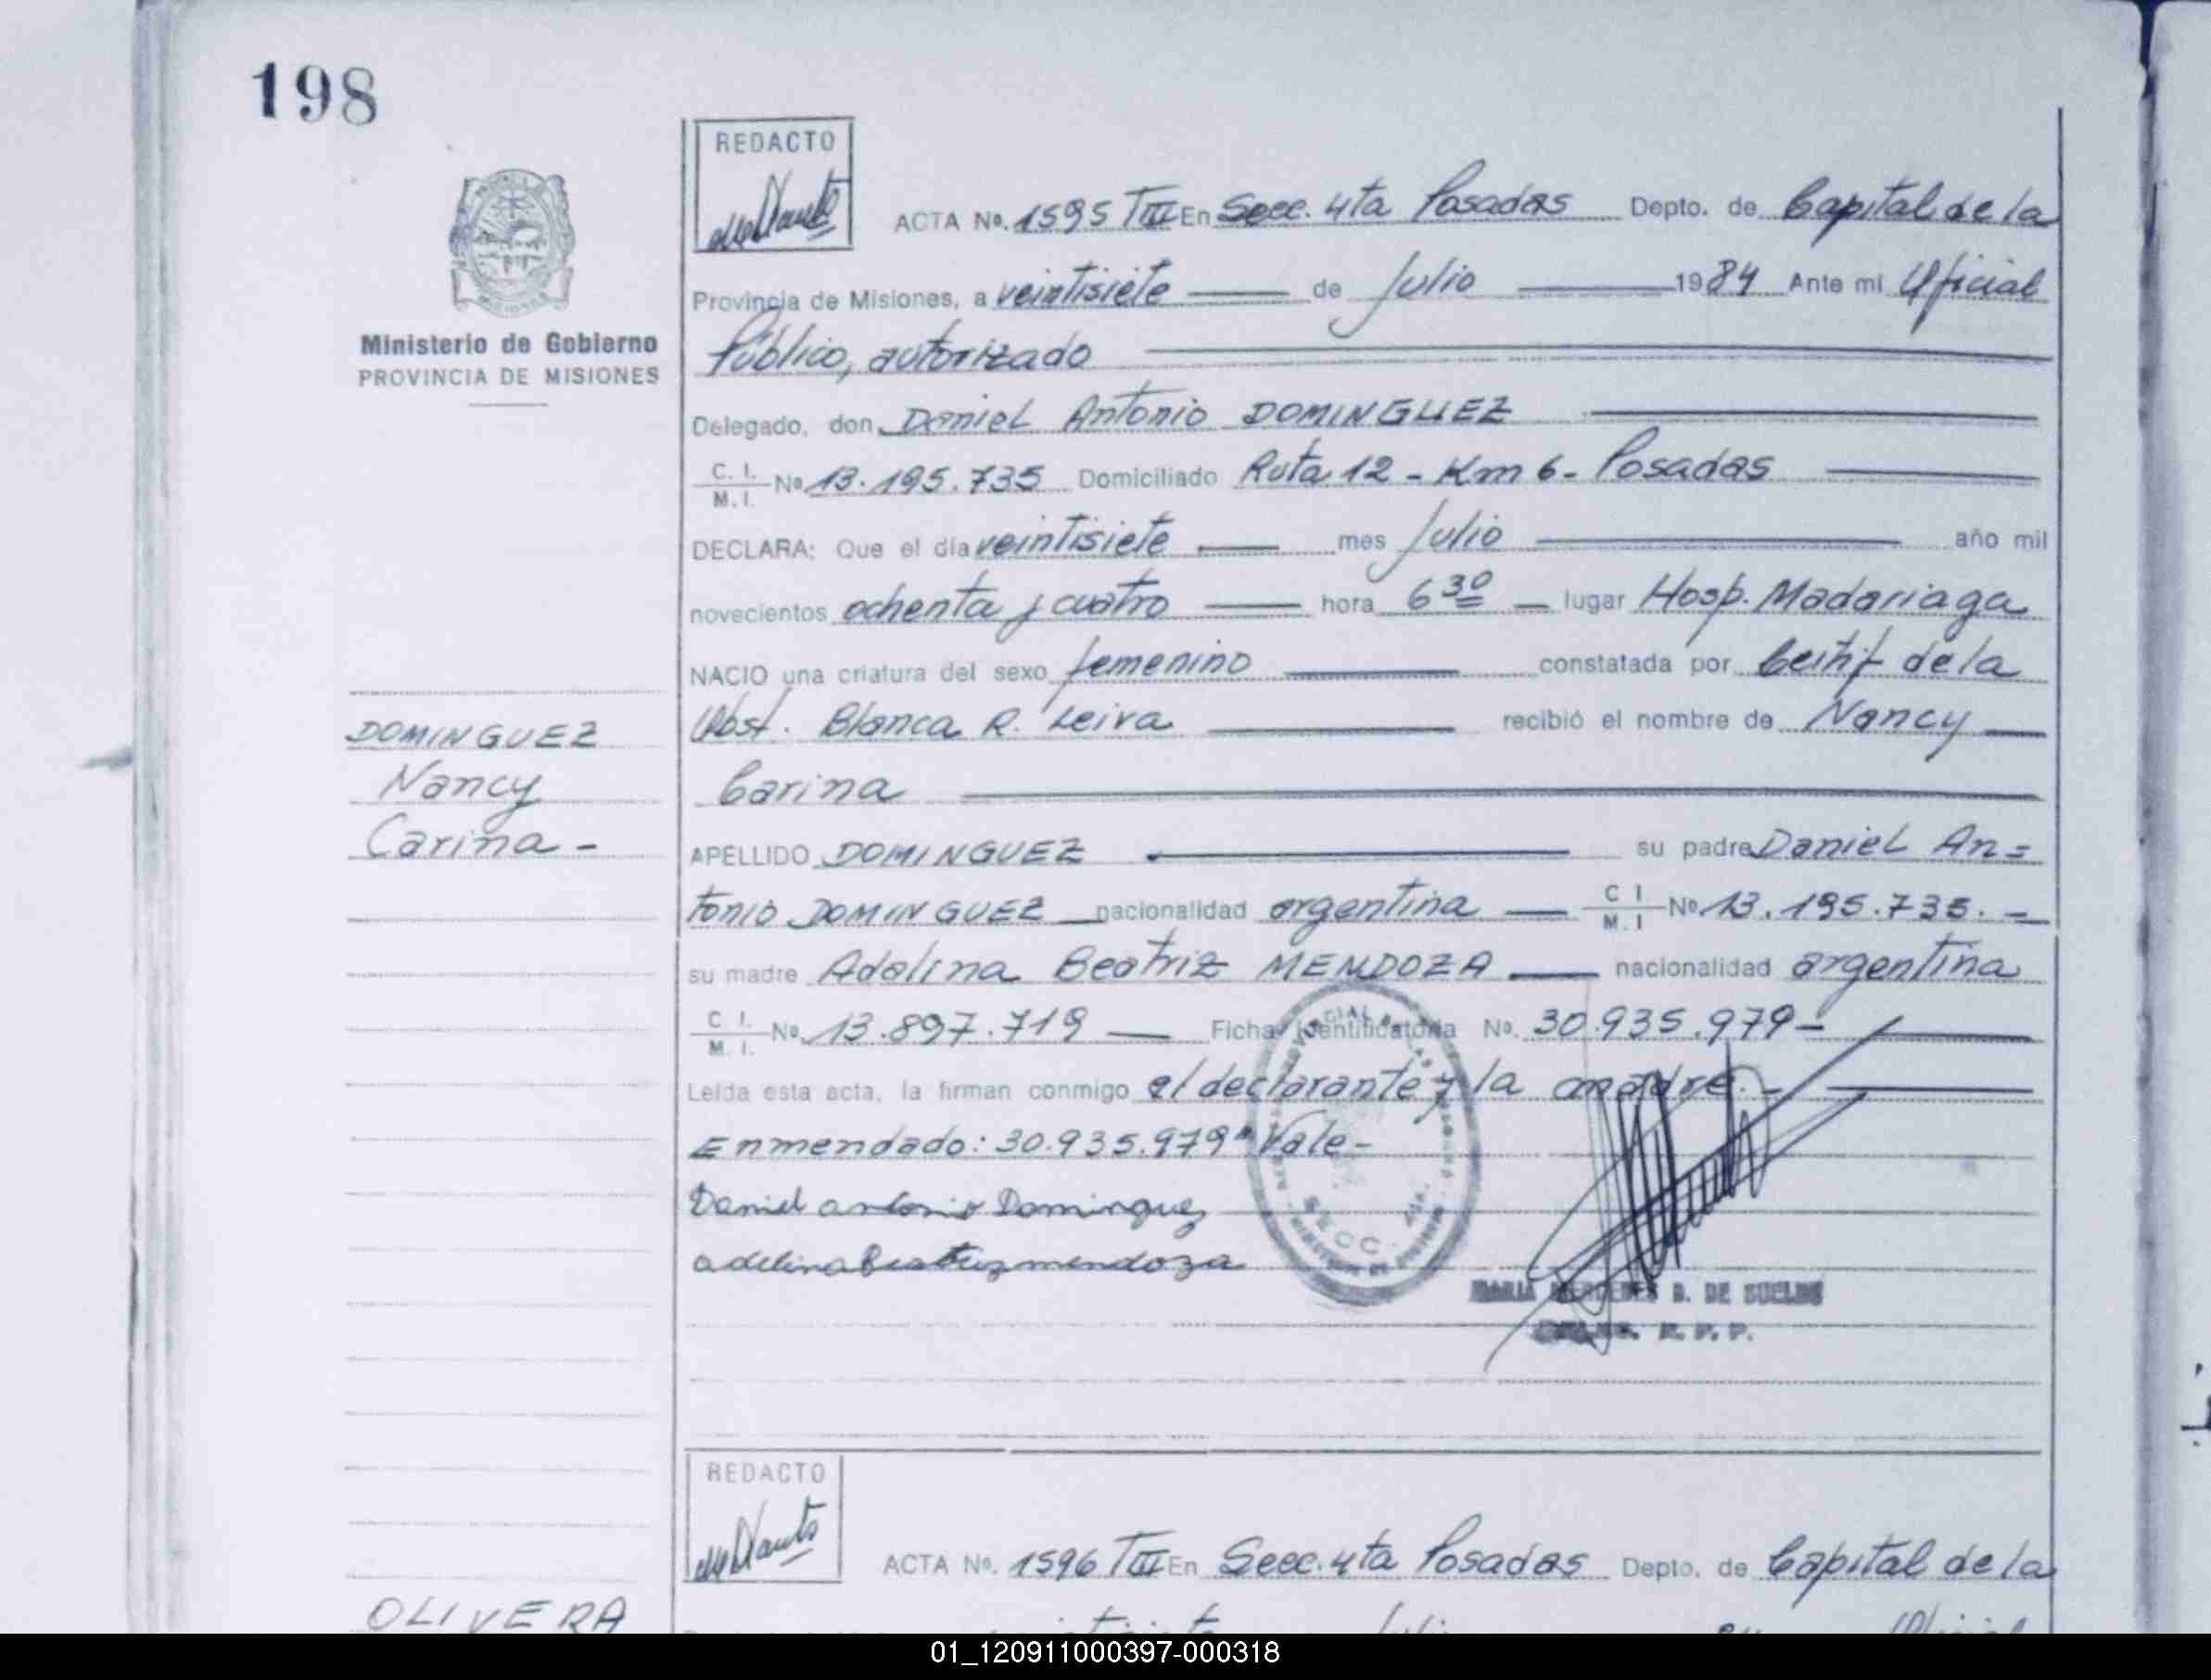 198
REDACTO
ACTA Nº. 1595 TIII En Secc. 4ta Posadas Depto. de Capital de la
Provincia de Misiones, a veintisiete de Julio 1984 Ante mi Oficial
Ministerio de Gobierno
PROVINCIA DE MISIONES
Público, autorizado
Delegado, don Daniel Antonio DOMINGUEZ
C. I. M. I. Nº 13.195.735 Domiciliado Ruta 12 - Km 6 - Posadas
DECLARA: Que el día veintisiete mes Julio año mil
novecientos ochenta y cuatro hora 6 30 lugar Hosp. Madariaga
NACIO una criatura del sexo femenino constatada por Certif de la
Obst. Blanca R. Leiva recibió el nombre de Nancy
Carina
DOMINGUEZ
Nancy
Carina -
APELLIDO DOMINGUEZ su padre Daniel An=
tonio DOMINGUEZ nacionalidad argentina C I M. I Nº 13.195.735. -
su madre Adelina Beatriz MENDOZA nacionalidad argentina
C I. M. I. Nº. 13.897.719 Ficha Identificatoria Nº. 30.935.979 -
Leída esta acta, la firman conmigo el declarante y la madre. -
Enmendado: 30.935.979" Vale -
Daniel antonio Dominguez
adelina Beatriz mendoza
SECC. 4ta.
MARIA MERCEDES B. DE SUELDO
R. P. P.
REDACTO
ACTA Nº. 1596 TIII En Secc. 4ta Posadas Depto. de Capital de la
OLIVERA
01_120911000397-000318